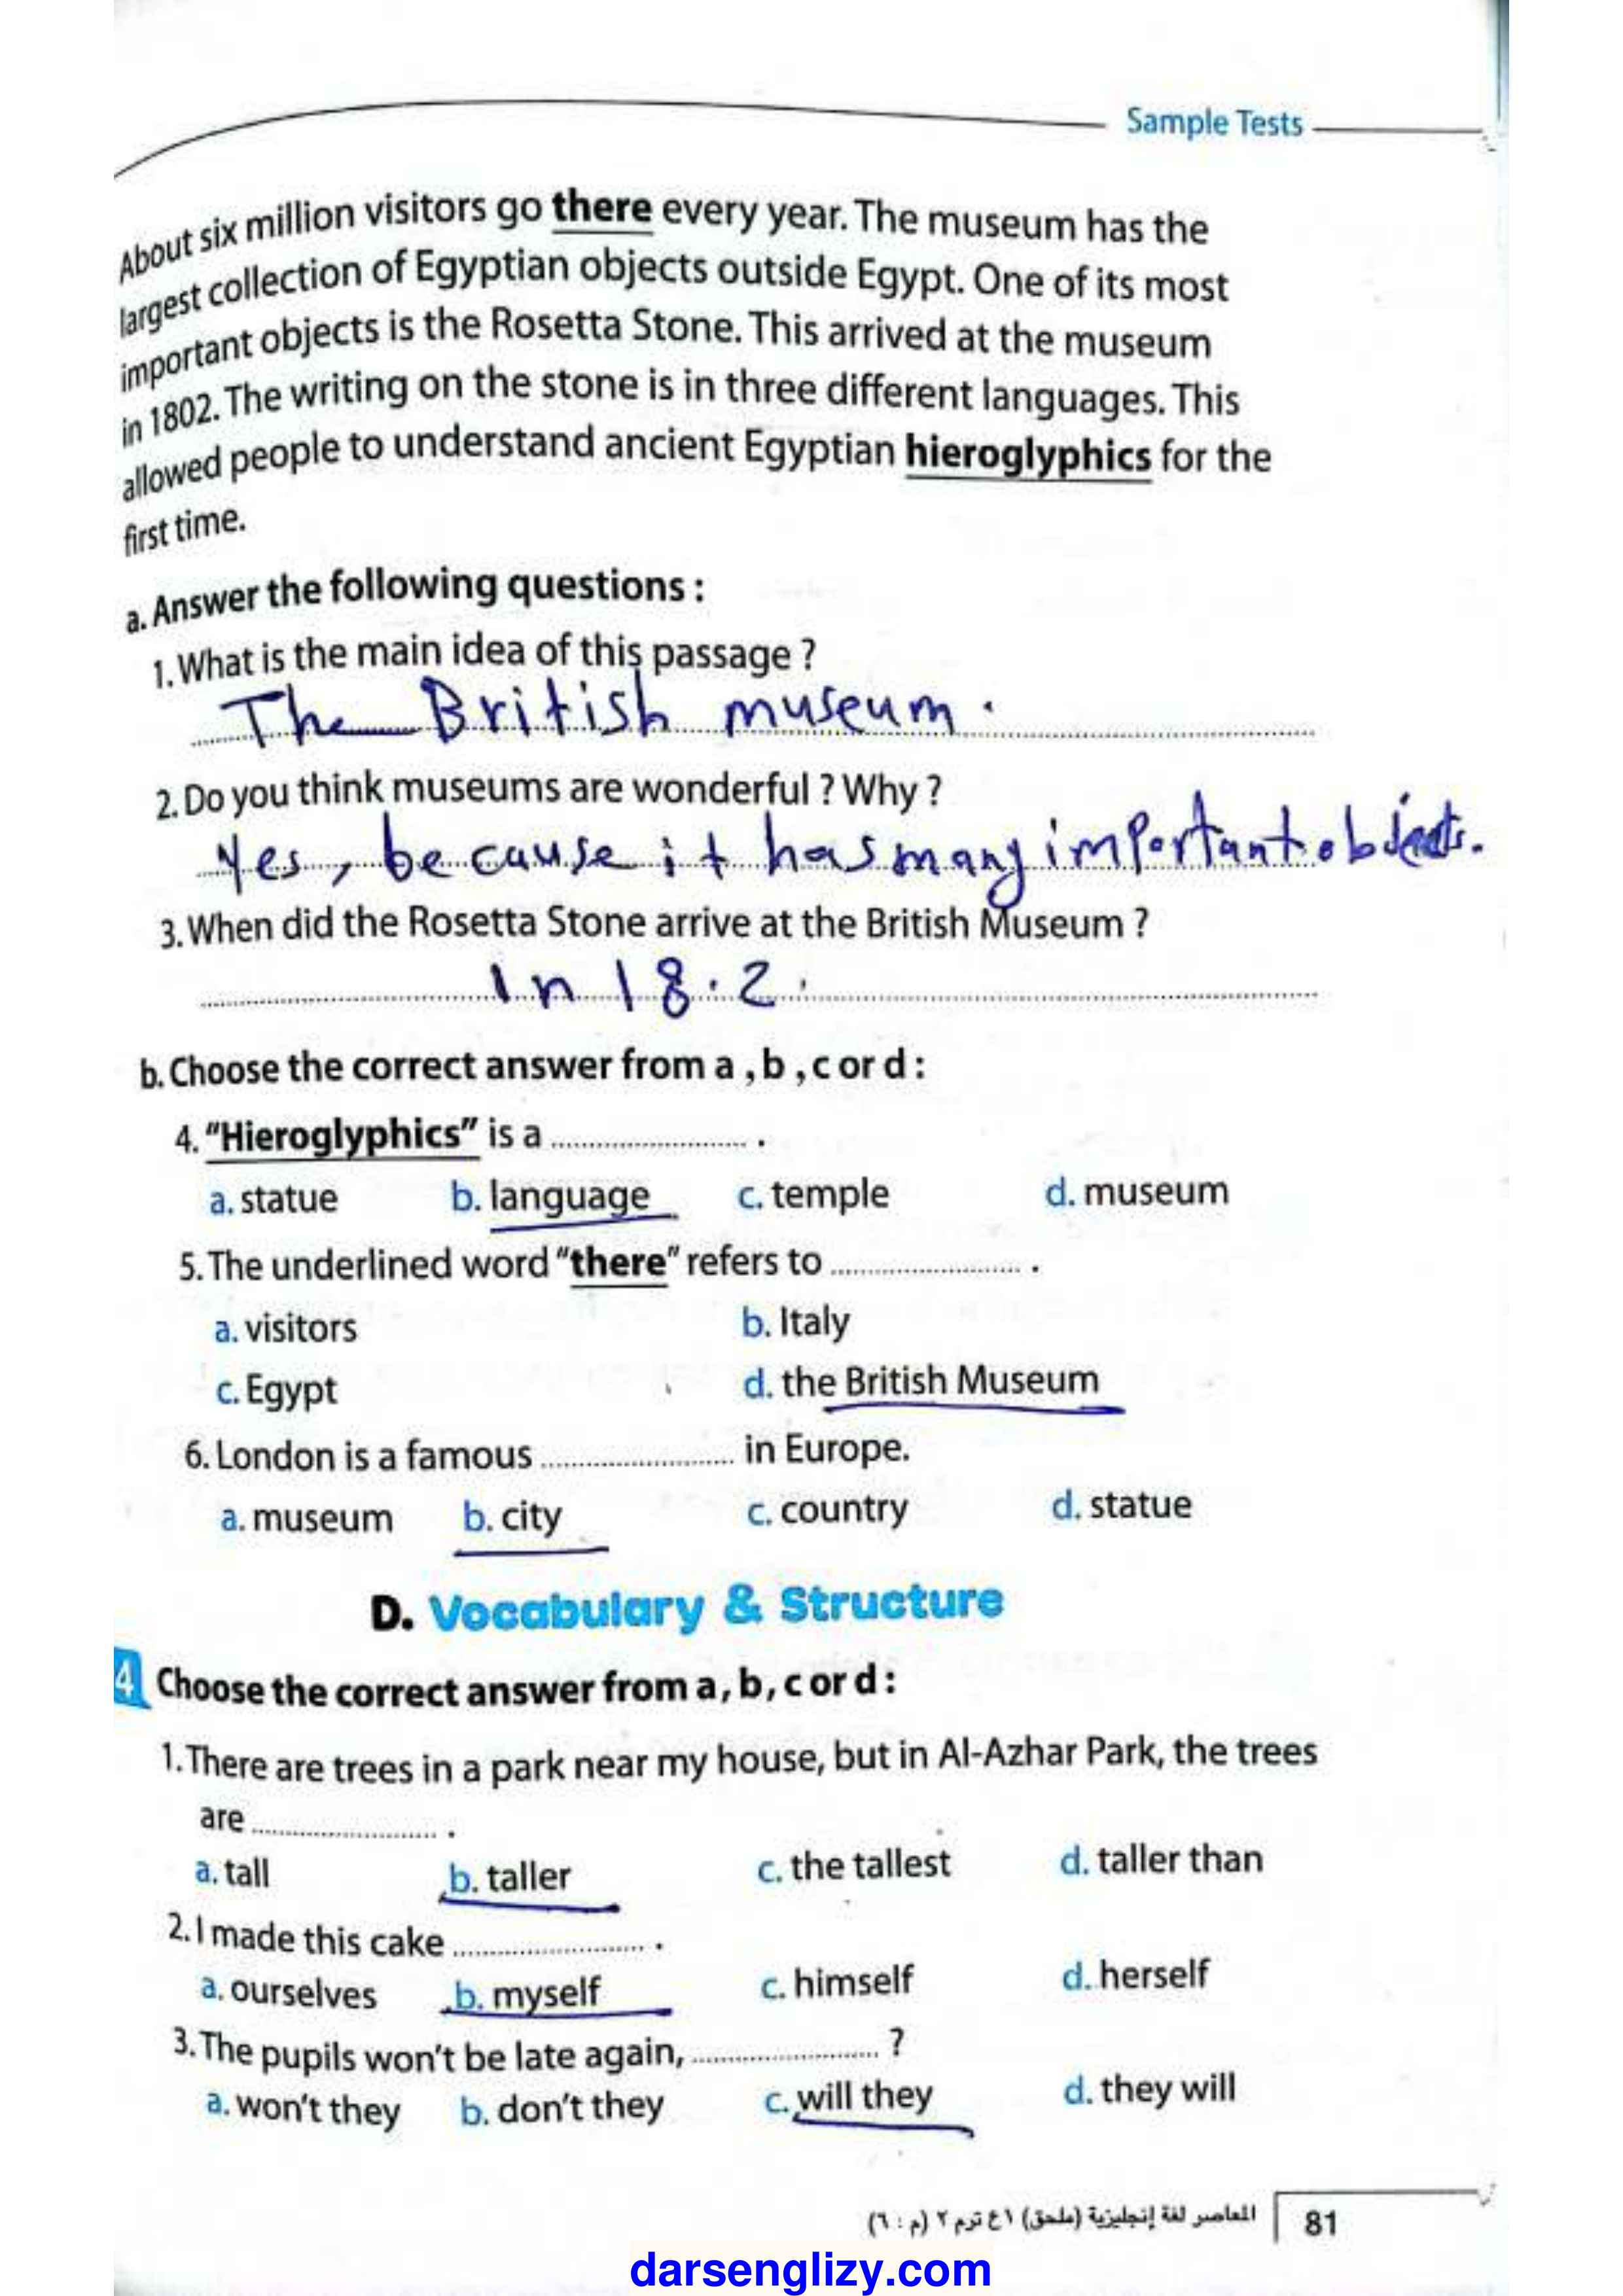 Sample Tests
About six million visitors go there every year. The museum has the
largest collection of Egyptian objects outside Egypt. One of its most
important objects is the Rosetta Stone. This arrived at the museum
in 1802. The writing on the stone is in three different languages. This
allowed people to understand ancient Egyptian hieroglyphics for the
first time.
a. Answer the following questions :
1. What is the main idea of this passage ?
The British museum.
2. Do you think museums are wonderful ? Why ?
Yes, because it has many important objects.
3. When did the Rosetta Stone arrive at the British Museum ?
In 18.2.
b. Choose the correct answer from a , b , c or d :
4. "Hieroglyphics" is a ........................ .
a. statue b. language c. temple d. museum
5. The underlined word "there" refers to ........................ .
a. visitors b. Italy
c. Egypt d. the British Museum
6. London is a famous ........................ in Europe.
a. museum b. city c. country d. statue
D. Vocabulary & Structure
4 Choose the correct answer from a , b , c or d :
1. There are trees in a park near my house, but in Al-Azhar Park, the trees
are ........................ .
a. tall b. taller c. the tallest d. taller than
2. I made this cake ........................ .
a. ourselves b. myself c. himself d. herself
3. The pupils won't be late again, ........................ ?
a. won't they b. don't they c. will they d. they will
المعاصر لغة إنجليزية (ملحق) ١ع ترم ٢ (م : ٦) 81
darsenglizy.com